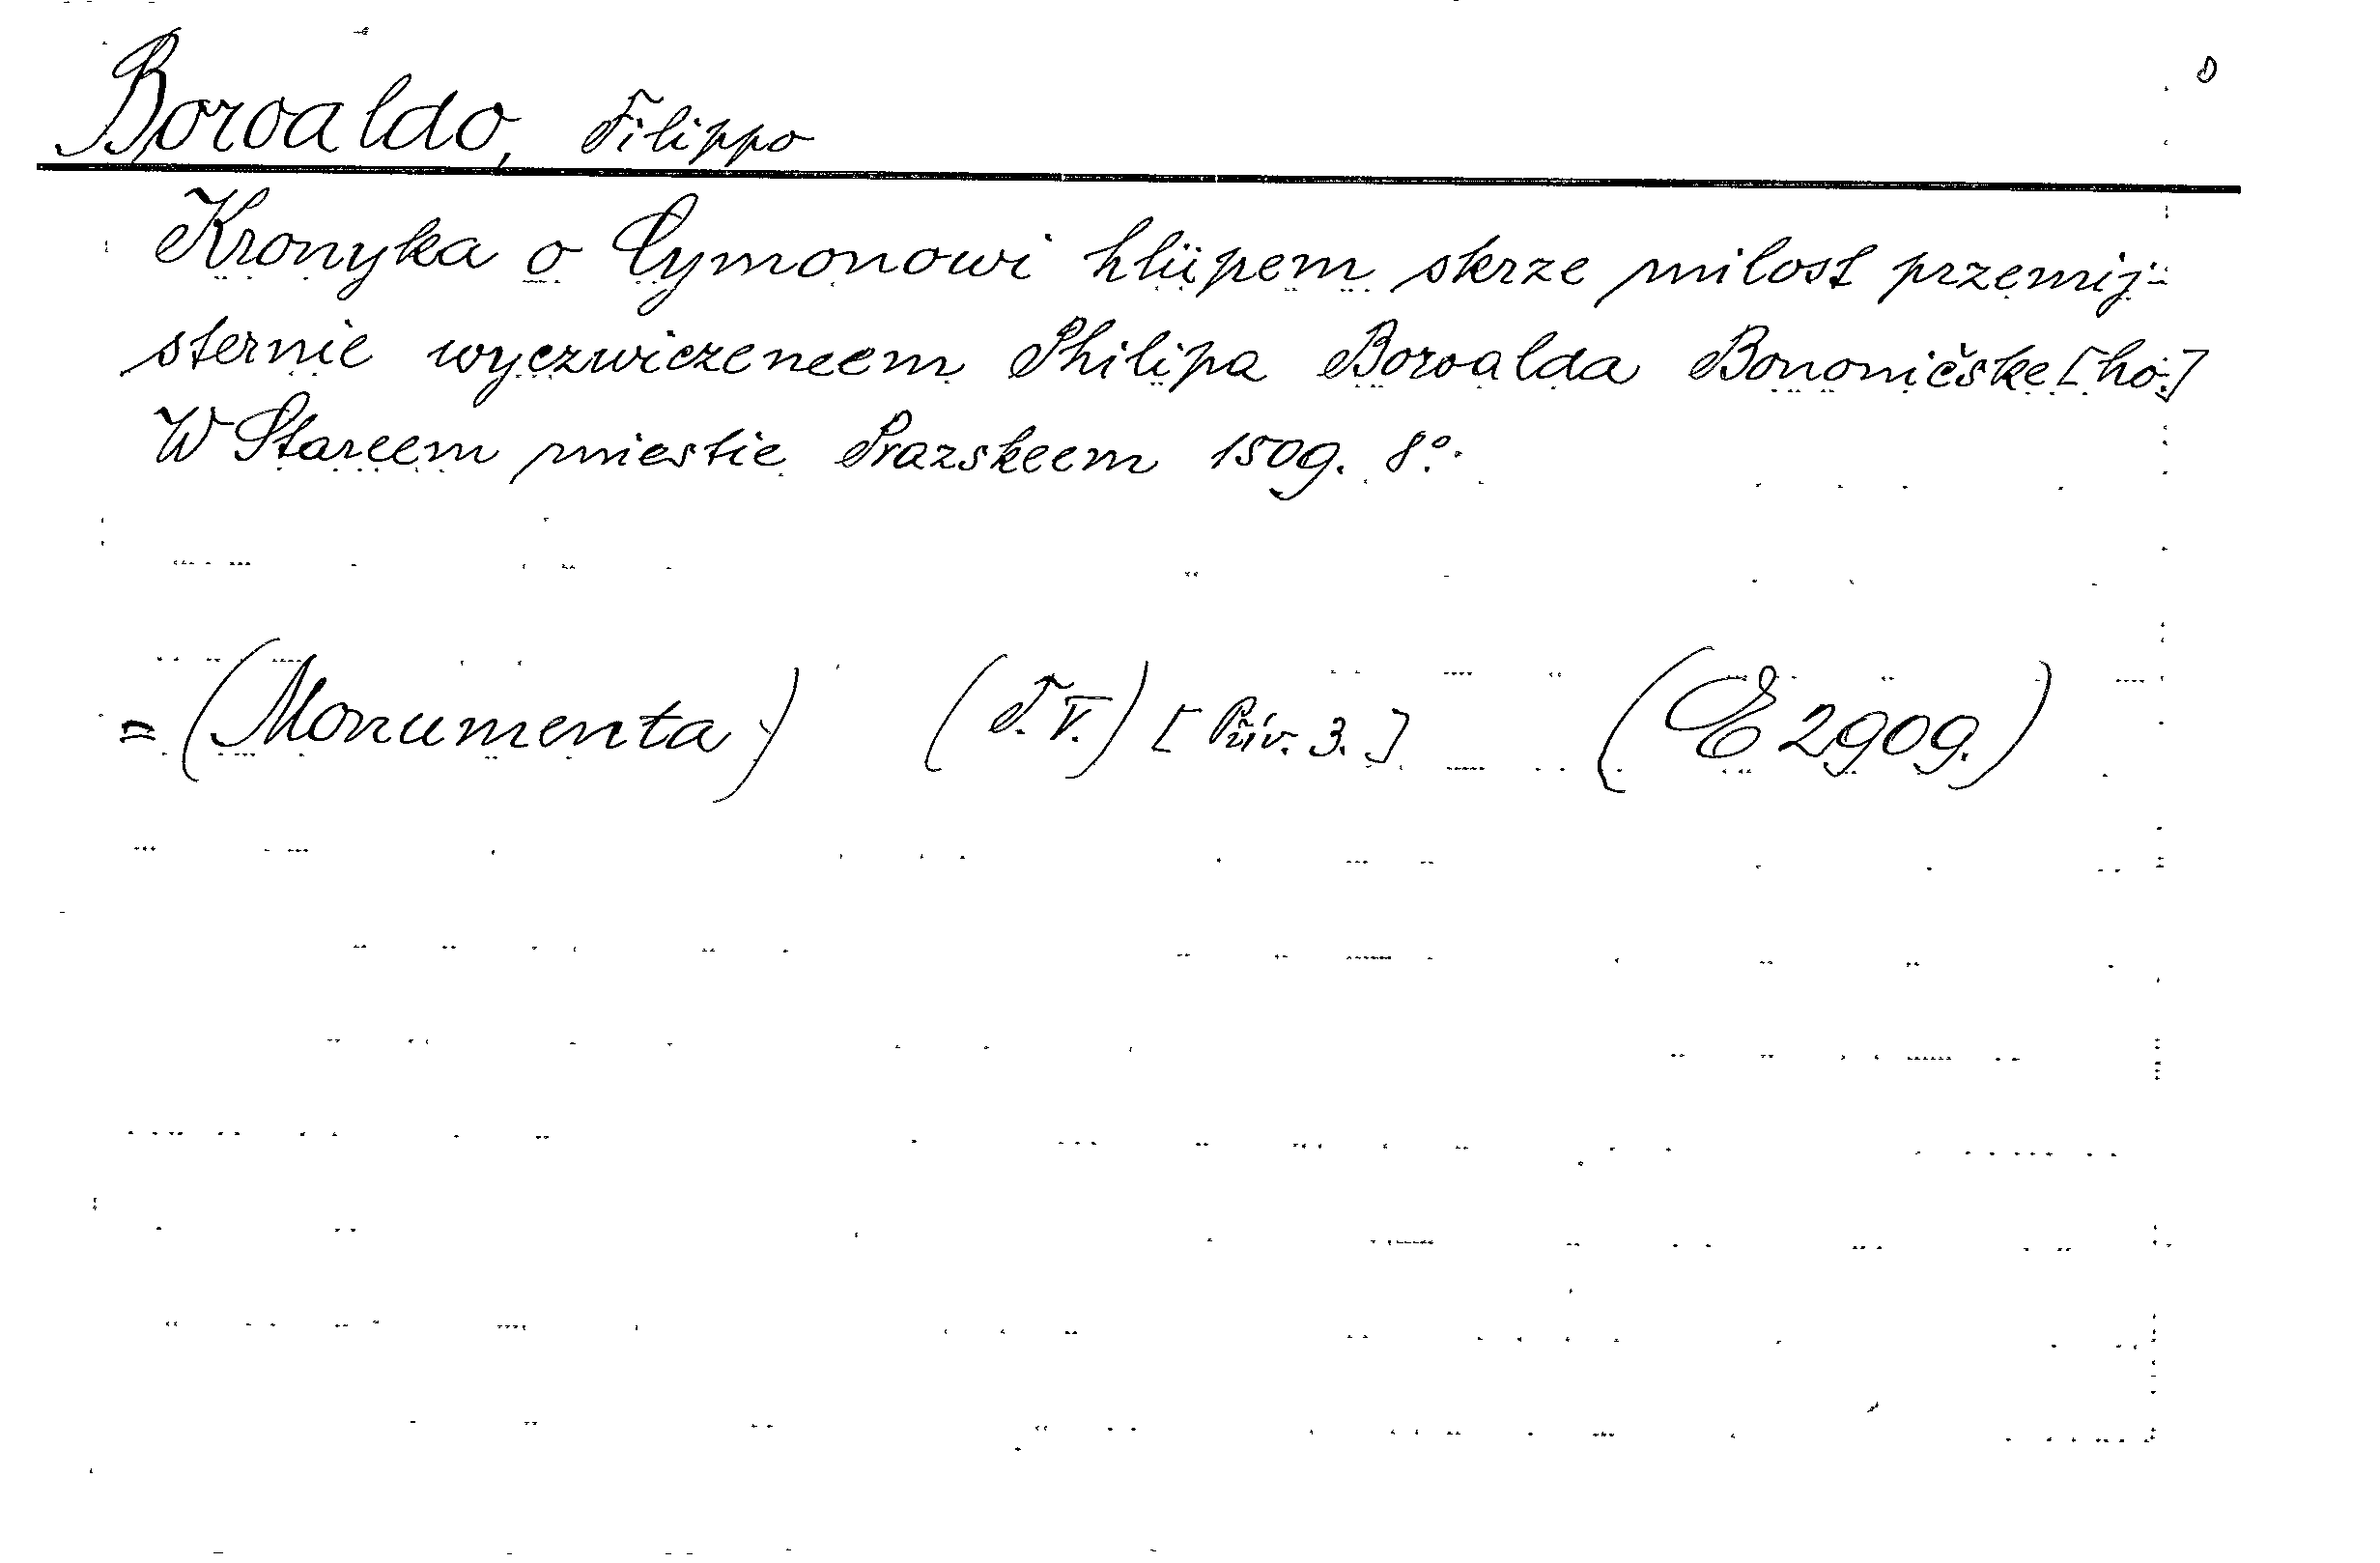 Boroaldo, Filippo
Kronyka o Cymonowi hlüpem skrze milost przemij-
sternie wyczwiczeneem Philipa Boroalda Bononičske[ho.]
W Stareem miestie Prazskeem 1509. 8°.
= (Monumenta) (T. V.) [Přív. 3.] (E 2909.)